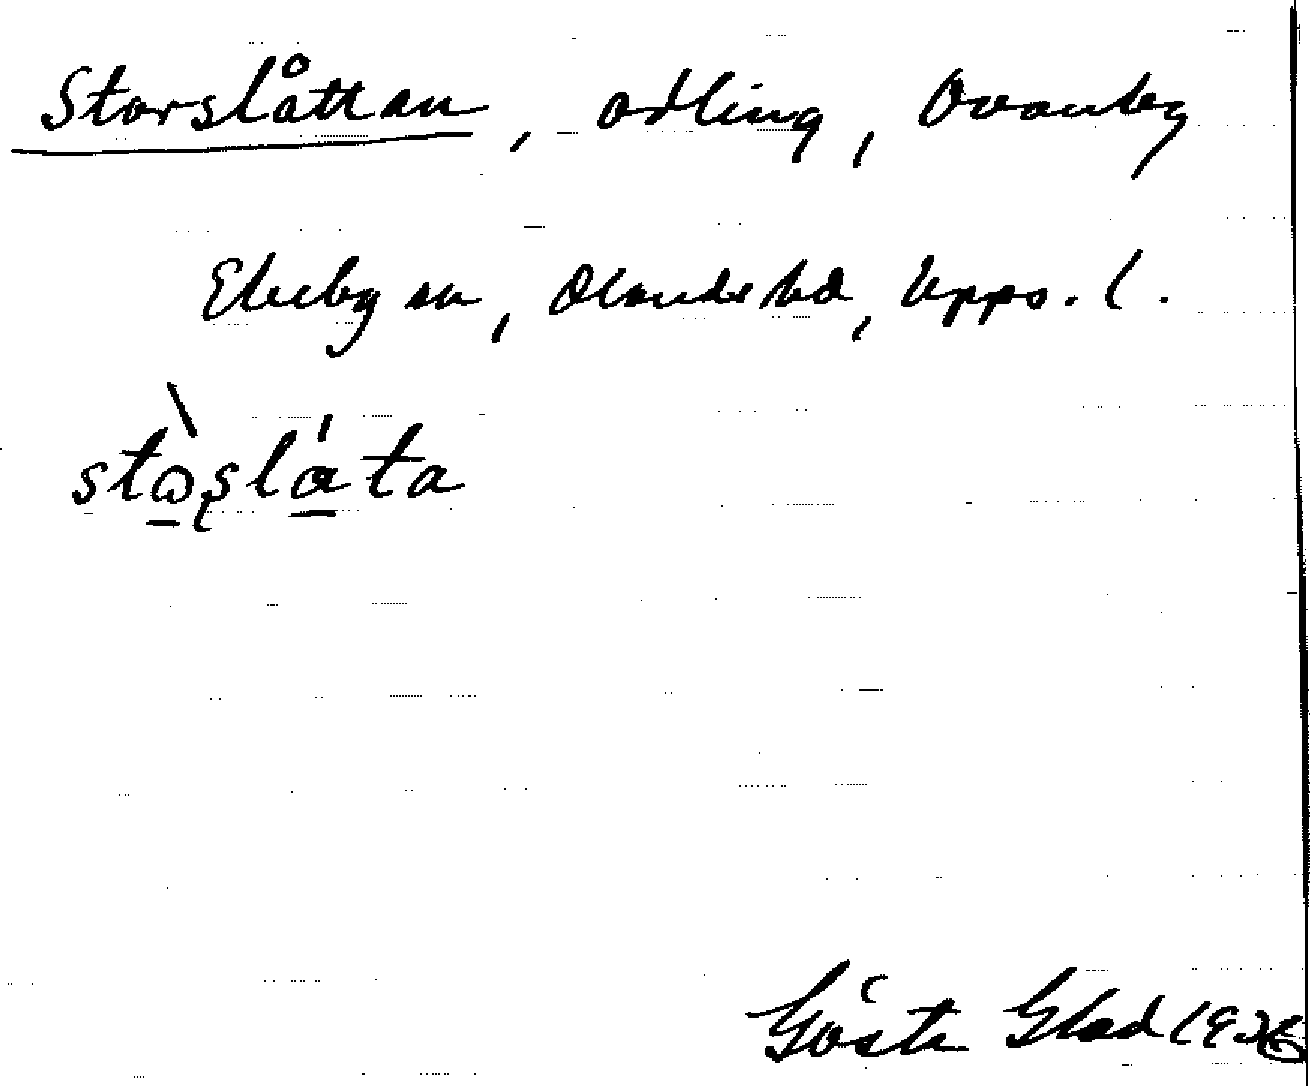 Storslåttan, odling, Ovanby
Ekeby sn, Olands hd, Upps. l.
stὼ̱ʂla̱̍ta
Gösta Glad 1926